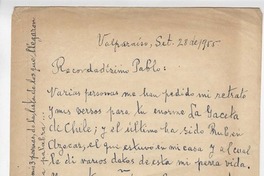 Valparaíso, Set. 28 de 1955
Recordadísimo Pablo:
Varias personas me han pedido mi retrato
y mis versos para tu enorme La Gaceta
de Chile; y el último ha sido Rubén
Azócar, el que estuvo en mi casa y al cual
le di varios datos de esta mi perra vida.
llegaron